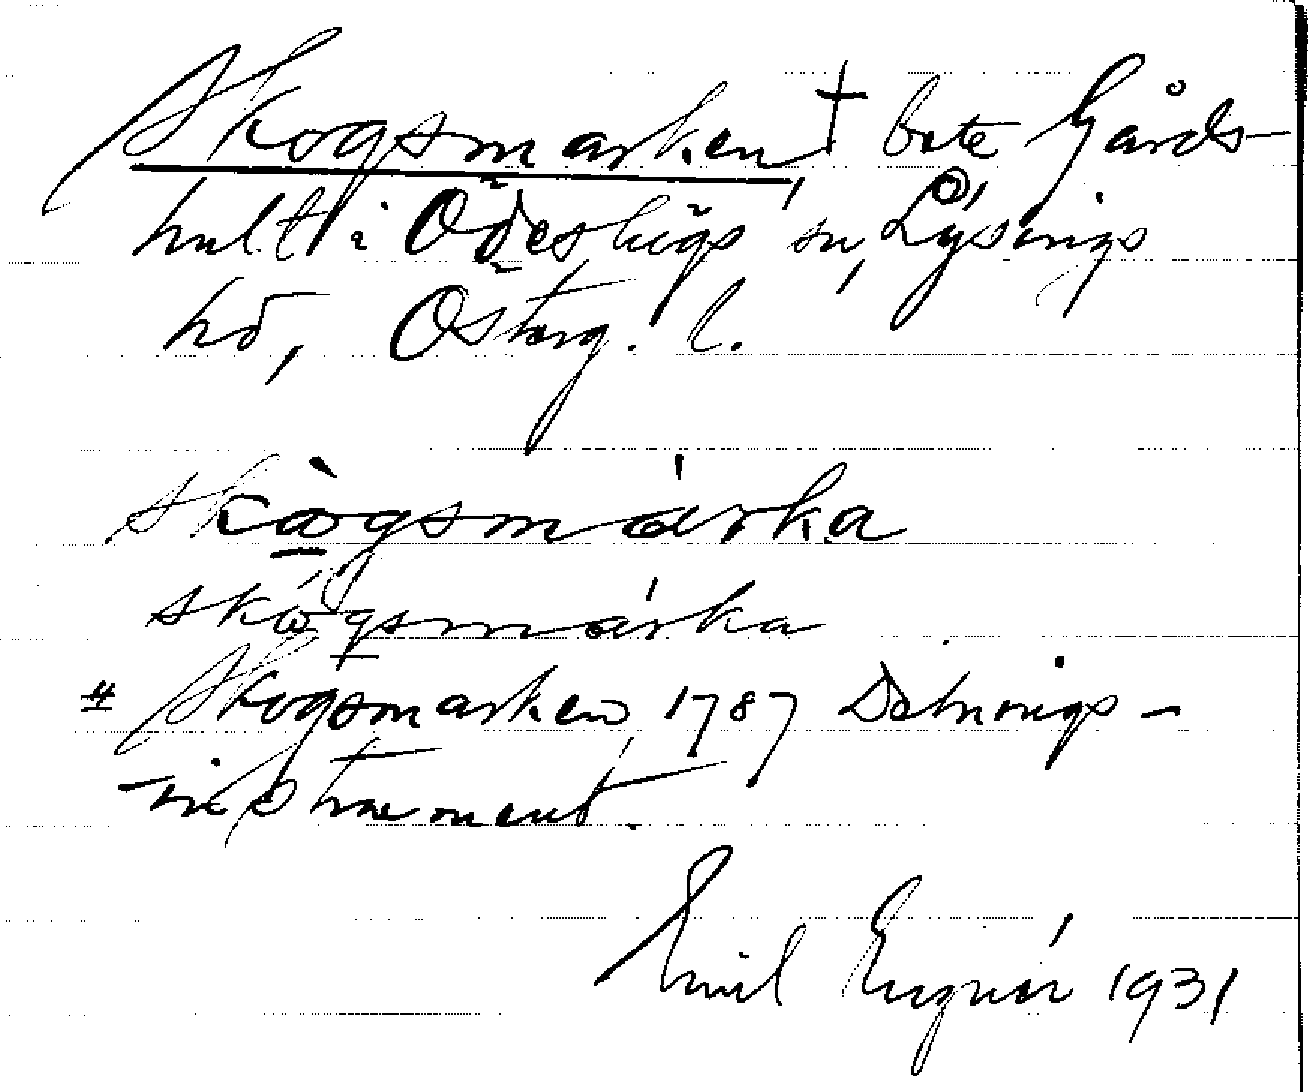 Skogsmarken † bete Gårds-
hult i Ödeshögs sn, Lysings
hd, Österg. l.
skògsmárka
skógsmárka
# Skogsmarken, 1787 Delnings-
-instrument.
Emil 1931